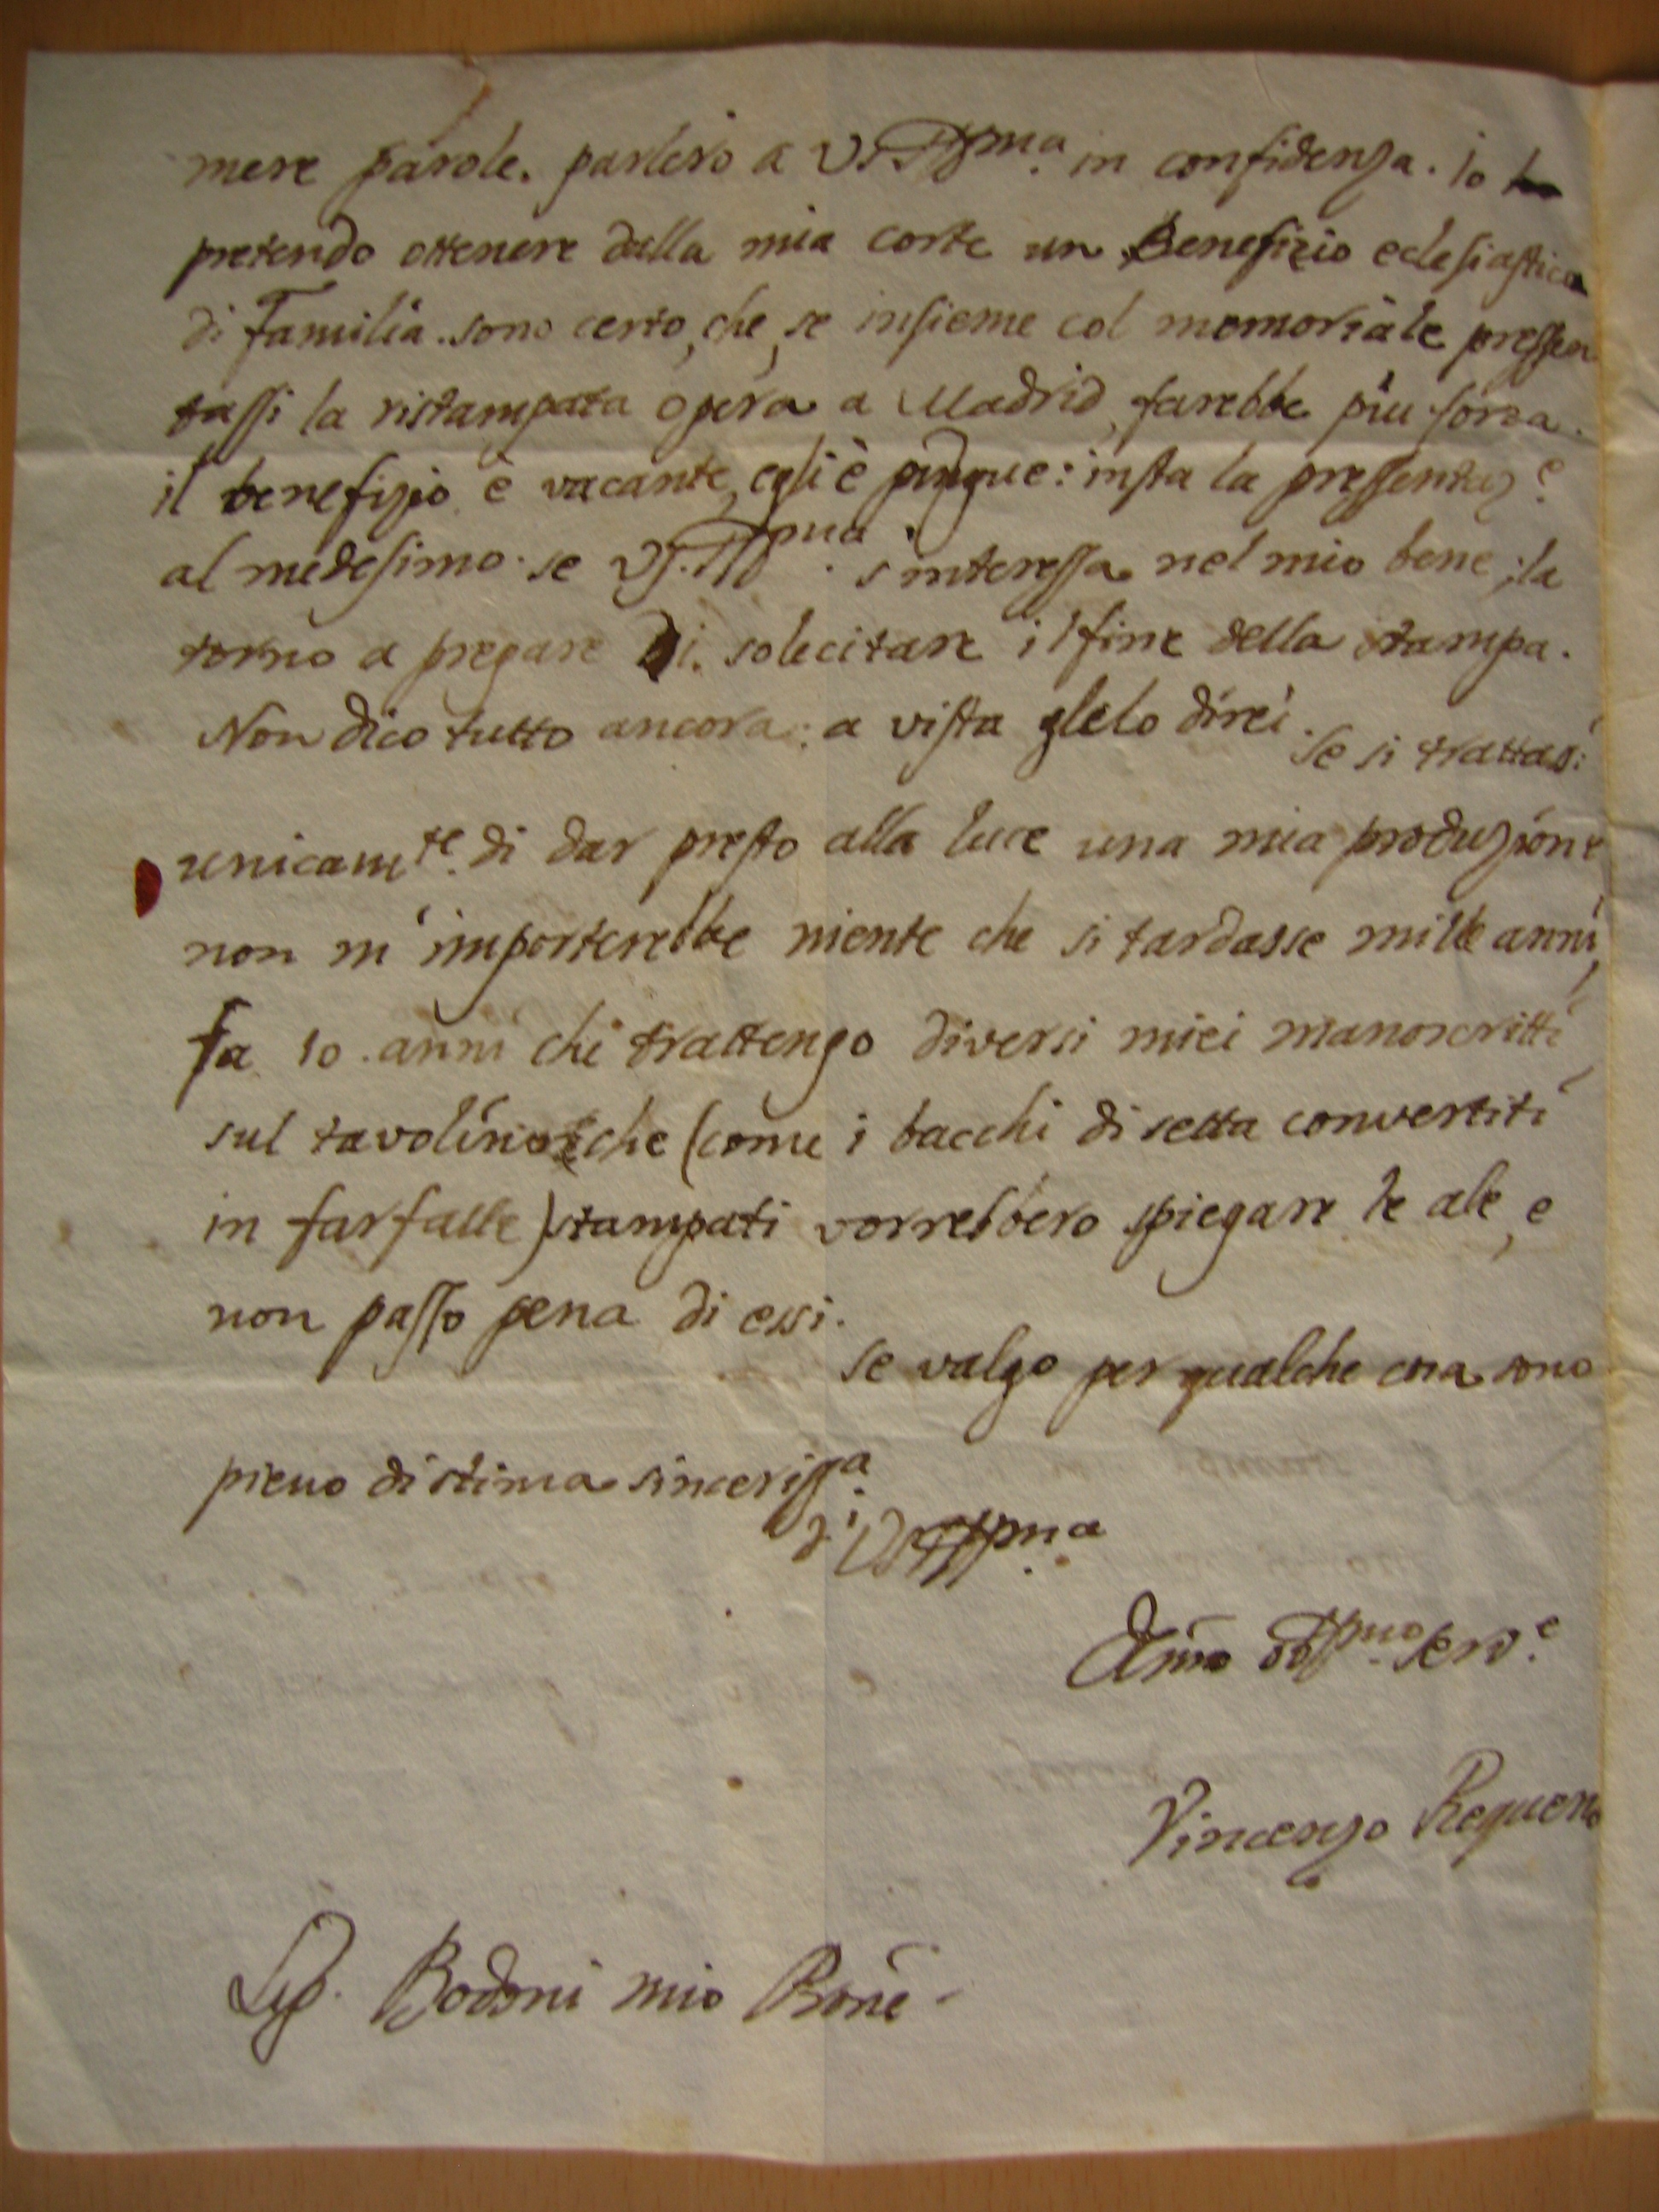 mere parole. parlerò a V.S. Illma. in confidenza. Io
pretendo ottenere dalla mia corte un Benefizio eclesiastico
di Familia. sono certo, che, se insieme col memoriale pressen
tassi la ristampata opera a Madrid, farebbe più forza.
il benefizio è vacante, egli è pingue: insta la pressentaz.e
al medesimo. se V.S. Illma. s'interessa nel mio bene, la
torno a pregare di solecitare il fine della stampa.
Non dico tutto ancora: a vista glelo direi. se si trattasi
unicamte. di dar presto alla luce una mia produzione
non m'importerebbe niente che si tardasse mille anni,
fa 10. anni che trattengo diversi miei manoscritti
sul tavolino che (come i bacchi di setta convertiti
in farfalle) stampati vorrebbero spiegare le ale, e
non passo pena di essi.
se valgo per qualche cosa sono
pieno di stima sincerissa.
di V.S. Illma.
Amo obbmo. serv.e
Vincenzo Requeno
Sig. Bodoni mio Prone